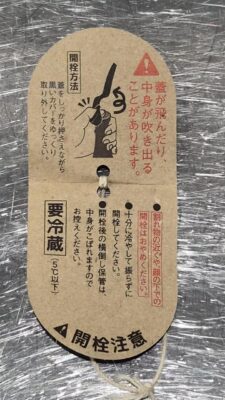 蓋が飛んだり、
中身が吹き出る
ことがあります。
開栓方法
蓋をしっかり押さえながら
黒いカバーをゆっくり
取り外してください。
●割れ物の近くや顔の下での
開栓はおやめください。
●十分に冷やして振らずに
開栓してください。
●開栓後の横倒し保管は、
中身がこぼれますので
お控えください。
要冷蔵
(5℃以下)
開栓注意